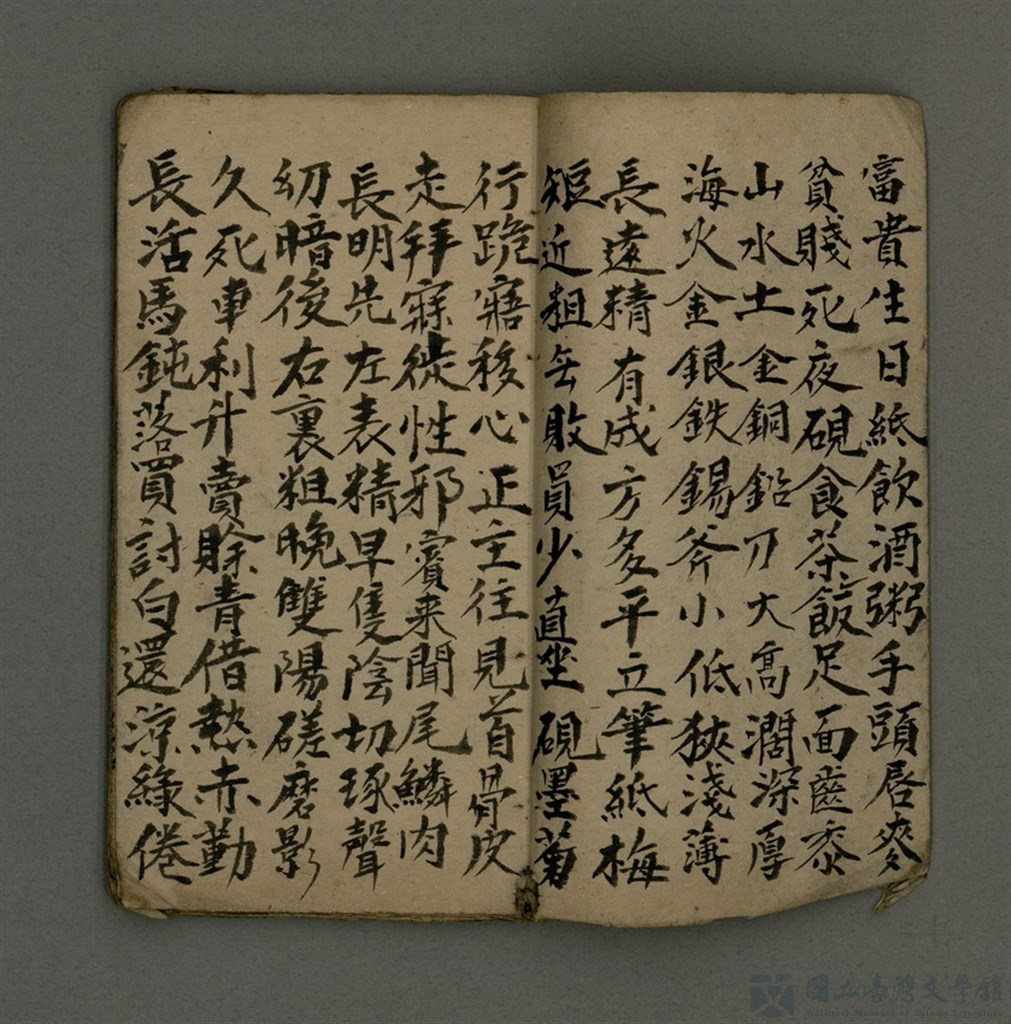 富貴生日紙飲酒粥手頭唇麥
貧賤死夜硯食茶飯足面齒黍
山水土金銅鉛刀大高濶深厚
海火金銀鉄錫斧小低狹淺薄
長遠精有成方多平立筆紙梅
短近粗敗員少直坐硯墨菊
行跪寤移心正主往見首骨皮
走拜寐徙性邪賓来聞尾鱗肉
長明先左表精早隻陰切琢聲
幼暗後右裏粗晚雙陽磋磨影
久死車利升賣賒青借熱赤勤
長活馬鈍落買討白還涼綠倦
國立臺灣文學館
National Museum of Taiwan Literature